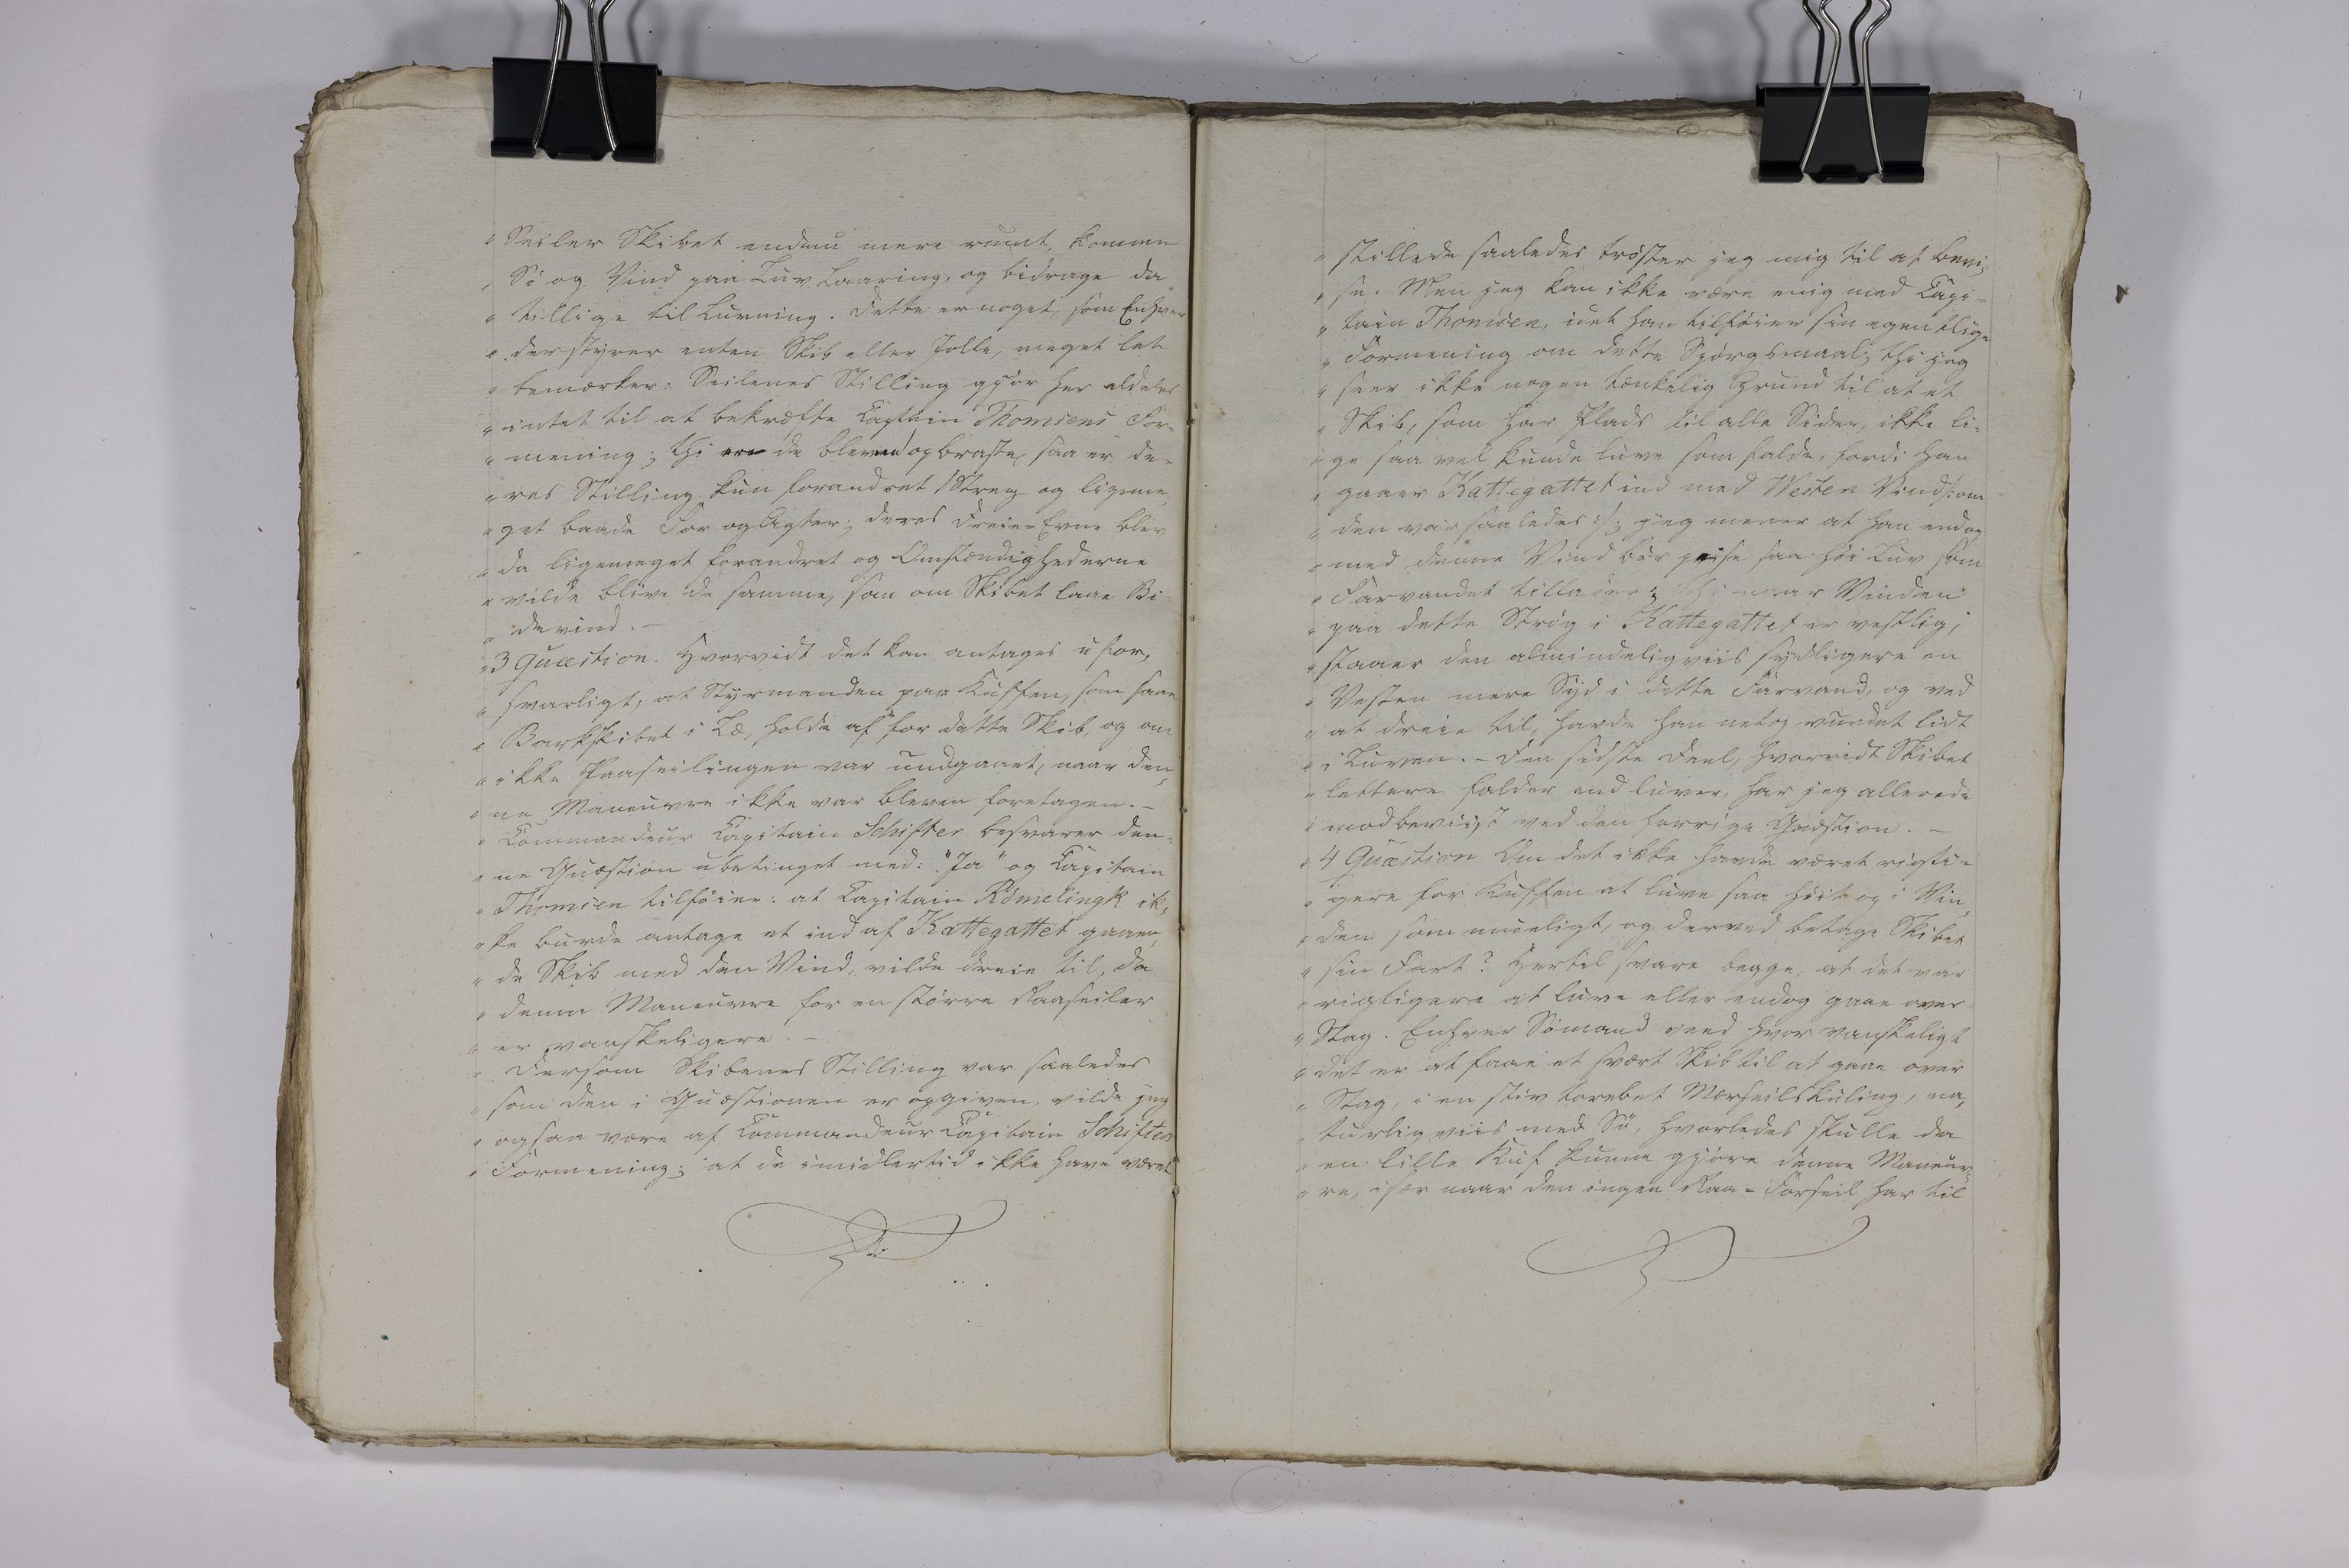 " Seiler Skibet endnu mere rumt, komme
" Sö og Vind paa Luv Laaring, og bidrage da
" tillige til Luvning. Dette er noget, som Enhver
" der styrer enten Skib eller Jolle, meget let
" bemærker: Seilenes Stilling gjör her aldeles
" intet til at bekræfte Captain Thomsens For-
" mening; thi ere de blevne opbraste, saa er de-
" res Stilling kun forandret 1 Streg og ligeme
" get baade For og Agter; deres Dreie-Evne blev
" da ligemeget forandret og Omstændighederne
" vilde blive de samme, som om Skibet laae Bi
" devind. -
" 3 Quæstion. Hvorvidt det kan antages ufor,
" svarligt, at Styrmanden paa Kuffen, som saae
" Barkskibet i Læ, holde af for dette Skib, og om
" ikke Paaseilingen var undgaaet, naar den,
" ne Maneuvre ikke var bleven foretagen. -
" Commandeur Capitain Schifter besvarer den-
" ne Quæstion ubetinget med: "Ja" og Capitain
" Thomsen tilföier: at Capitain Römelingk ik,
" ke burde antage et ind af Kattegattet gaaen,
" de Skib med den Vind, vilde dreie til, da
" denne Maneuvre for en större Raaseiler
" er vanskeligere. -
" Dersom Skibenes Stilling var saaledes
" som den i Quæstionen er opgiven, vilde jeg
" ogsaa være af Commandeur Capitain Schifters
" Formening; at de imidlertid ikke have været
" stillede saaledes tröster jeg mig til at bevi,
" se. Men jeg kan ikke være enig med Capi-
" tain Thomsen, idet han tilföier sin egentlige
" Formening om dette Spörgsmaal; thi jeg
" seer ikke nogen tænkelig Grund til at et
" Skib, som har Plads til alle Sider, ikke li-
" ge saa vel kunde luve som falde, fordi han
" gaaer Kattegattet ind med Westen Vind /: om
" den var saaledes :/; jeg mener at han endog
" med denne Vind bör preise saa höi Luv som
" Farvandet tillader; thi naar Vinden
" paa dette Strög i Kattegattet er vestlig,
" staaer den almindeligviis sydligere en
" Vesten mere Syd i dette Farvand, og ved
" at dreie til, havde han netop vundet lidt
" i Luven. - Den sidste Deel, hvorvidt Skibet
" lettere falder end luver, har jeg allerede
" modbeviist ved den forrige Quæstion. -
" 4 Quæstion Om det ikke havde været rigti-
" gere for Kuffen at luve saa höit op i Vin,
" den som mueligt, og derved betage Skibet
" sin Fart? Hertil svare begge, at det var
" rigtigere at luve eller endog gaae over
" Stag. Enhver Sömand veed hvor vanskeligt
" det er at faae et svært Skib til at gaae over
" Stag, i en stiv torebet Mærseilskuling, na,
" turligviis med Sö, hvorledes skulle da
" en lille Kuf kunne gjöre denne Maneuv-
" re, især naar den ingen Raa-Forseil har til